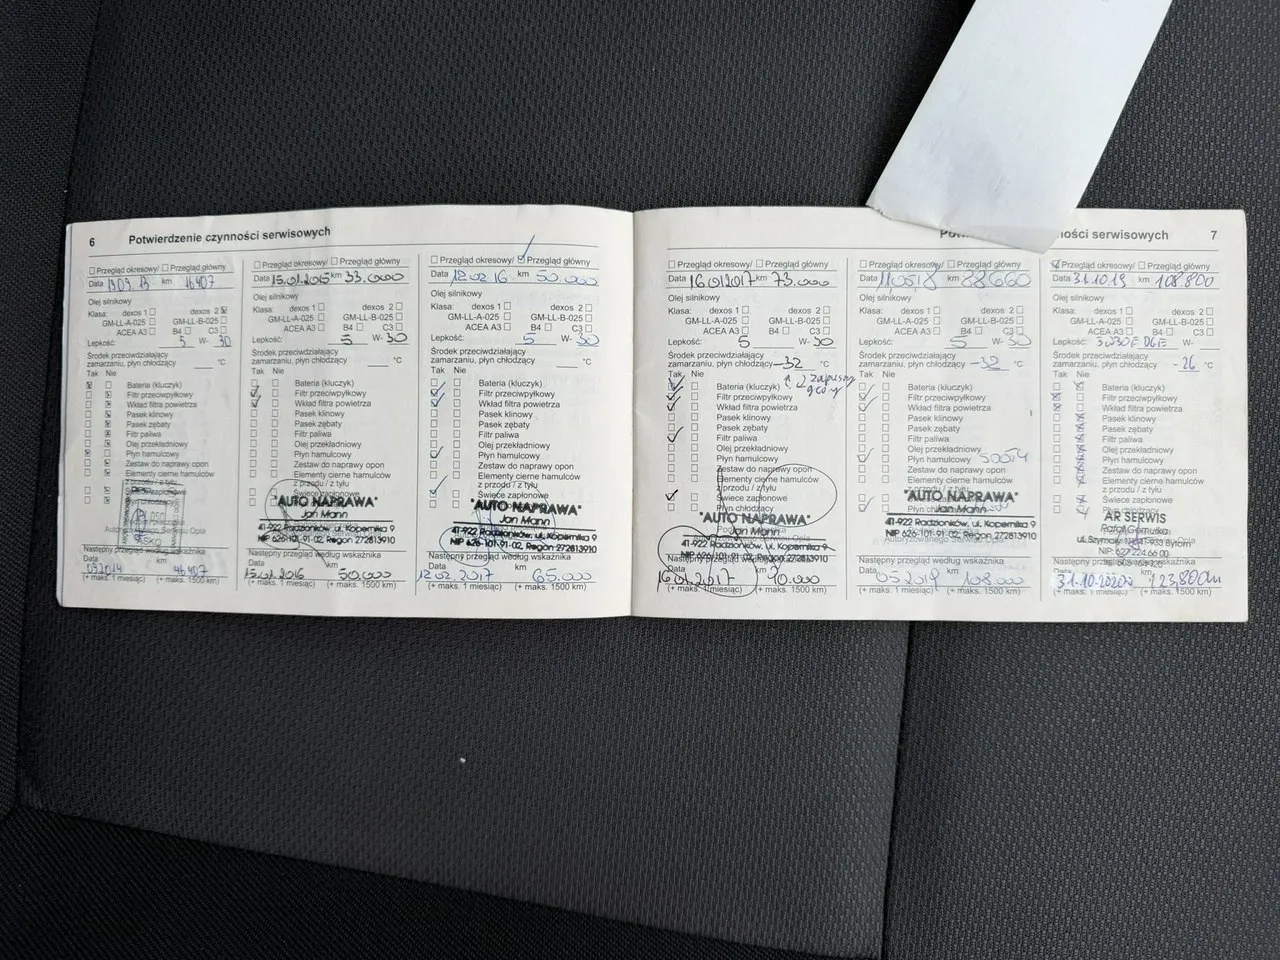 6 Potwierdzenie czynności serwisowych
Przegląd okresowy/ Przegląd główny
Data 13 09 13 km 16407
Olej silnikowy
Klasa: dexos 1 dexos 2
GM-LL-A-025 GM-LL-B-025
ACEA A3 B4 C3
Lepkość: 5 W- 30
Środek przeciwdziałający
zamarzaniu, płyn chłodzący °C
Tak Nie
Bateria (kluczyk)
Filtr przeciwpyłkowy
Wkład filtra powietrza
Pasek klinowy
Pasek zębaty
Filtr paliwa
Olej przekładniowy
Płyn hamulcowy
Zestaw do naprawy opon
Elementy cierne hamulców
z przodu / z tyłu
Następny przegląd według wskaźnika
Data km
092014 46407
(+ maks. 1 miesiąc) (+ maks. 1500 km)
Przegląd okresowy/ Przegląd główny
Data 15.01.2015 km 33.000
Olej silnikowy
Klasa: dexos 1 dexos 2
GM-LL-A-025 GM-LL-B-025
ACEA A3 B4 C3
Lepkość: 5 W- 30
Środek przeciwdziałający
zamarzaniu, płyn chłodzący °C
Tak Nie
Bateria (kluczyk)
Filtr przeciwpyłkowy
Wkład filtra powietrza
Pasek klinowy
Pasek zębaty
Filtr paliwa
Olej przekładniowy
Płyn hamulcowy
Zestaw do naprawy opon
Elementy cierne hamulców
z przodu / z tyłu
Świece zapłonowe
"AUTO NAPRAWA"
Jan Mann
41-922 Radzionków, ul. Kopernika 9
NIP 626-101-91-02, Regon 272813910
Następny przegląd według wskaźnika
Data km
15.01.2016 50.000
(+ maks. 1 miesiąc) (+ maks. 1500 km)
Przegląd okresowy/ Przegląd główny
Data 12 02 16 km 50.000
Olej silnikowy
Klasa: dexos 1 dexos 2
GM-LL-A-025 GM-LL-B-025
ACEA A3 B4 C3
Lepkość: 5 W- 30
Środek przeciwdziałający
zamarzaniu, płyn chłodzący °C
Tak Nie
Bateria (kluczyk)
Filtr przeciwpyłkowy
Wkład filtra powietrza
Pasek klinowy
Pasek zębaty
Filtr paliwa
Olej przekładniowy
Płyn hamulcowy
Zestaw do naprawy opon
Elementy cierne hamulców
z przodu / z tyłu
Świece zapłonowe
"AUTO NAPRAWA"
Jan Mann
41-922 Radzionków, ul. Kopernika 9
NIP 626-101-91-02, Regon 272813910
Następny przegląd według wskaźnika
Data km
12 02 2017 65.000
(+ maks. 1 miesiąc) (+ maks. 1500 km)
ności serwisowych 7
Przegląd okresowy/ Przegląd główny
Data 16 01 2017 km 73.000
Olej silnikowy
Klasa: dexos 1 dexos 2
GM-LL-A-025 GM-LL-B-025
ACEA A3 B4 C3
Lepkość: 5 W- 30
Środek przeciwdziałający
zamarzaniu, płyn chłodzący -32 °C
Tak Nie
Bateria (kluczyk)
Filtr przeciwpyłkowy
Wkład filtra powietrza
Pasek klinowy
Pasek zębaty
Filtr paliwa
Olej przekładniowy
Płyn hamulcowy
Zestaw do naprawy opon
Elementy cierne hamulców
z przodu / z tyłu
Świece zapłonowe
Płyn chłodzący
"AUTO NAPRAWA"
Jan Mann
41-922 Radzionków, ul. Kopernika 9
NIP 626-101-91-02, Regon 272813910
Następny przegląd według wskaźnika
Data km
16.01.2017 90.000
(+ maks. 1 miesiąc) (+ maks. 1500 km)
Przegląd okresowy/ Przegląd główny
Data 110518 km 88660
Olej silnikowy
Klasa: dexos 1 dexos 2
GM-LL-A-025 GM-LL-B-025
ACEA A3 B4 C3
Lepkość: 5 W- 30
Środek przeciwdziałający
zamarzaniu, płyn chłodzący -32 °C
Tak Nie
Bateria (kluczyk)
Filtr przeciwpyłkowy
Wkład filtra powietrza
Pasek klinowy
Pasek zębaty
Filtr paliwa
Olej przekładniowy
Płyn hamulcowy
Zestaw do naprawy opon
Elementy cierne hamulców
z przodu / z tyłu
"AUTO NAPRAWA"
Jan Mann
41-922 Radzionków, ul. Kopernika 9
NIP 626-101-91-02, Regon 272813910
Następny przegląd według wskaźnika
Data km
05 2019 108.000
(+ maks. 1 miesiąc) (+ maks. 1500 km)
Przegląd okresowy/ Przegląd główny
Data 31.10.19 km 108.800
Olej silnikowy
Klasa: dexos 1 dexos 2
GM-LL-A-025 GM-LL-B-025
ACEA A3 B4 C3
Lepkość: W-
Środek przeciwdziałający
zamarzaniu, płyn chłodzący -26 °C
Tak Nie
Bateria (kluczyk)
Filtr przeciwpyłkowy
Wkład filtra powietrza
Pasek klinowy
Pasek zębaty
Filtr paliwa
Olej przekładniowy
Płyn hamulcowy
Zestaw do naprawy opon
Elementy cierne hamulców
z przodu / z tyłu
Świece zapłonowe
AR SERWIS
NIP: 627 224 66 00
Następny przegląd według wskaźnika
31.10.2020 123.800km
(+ maks. 1 miesiąc) (+ maks. 1500 km)